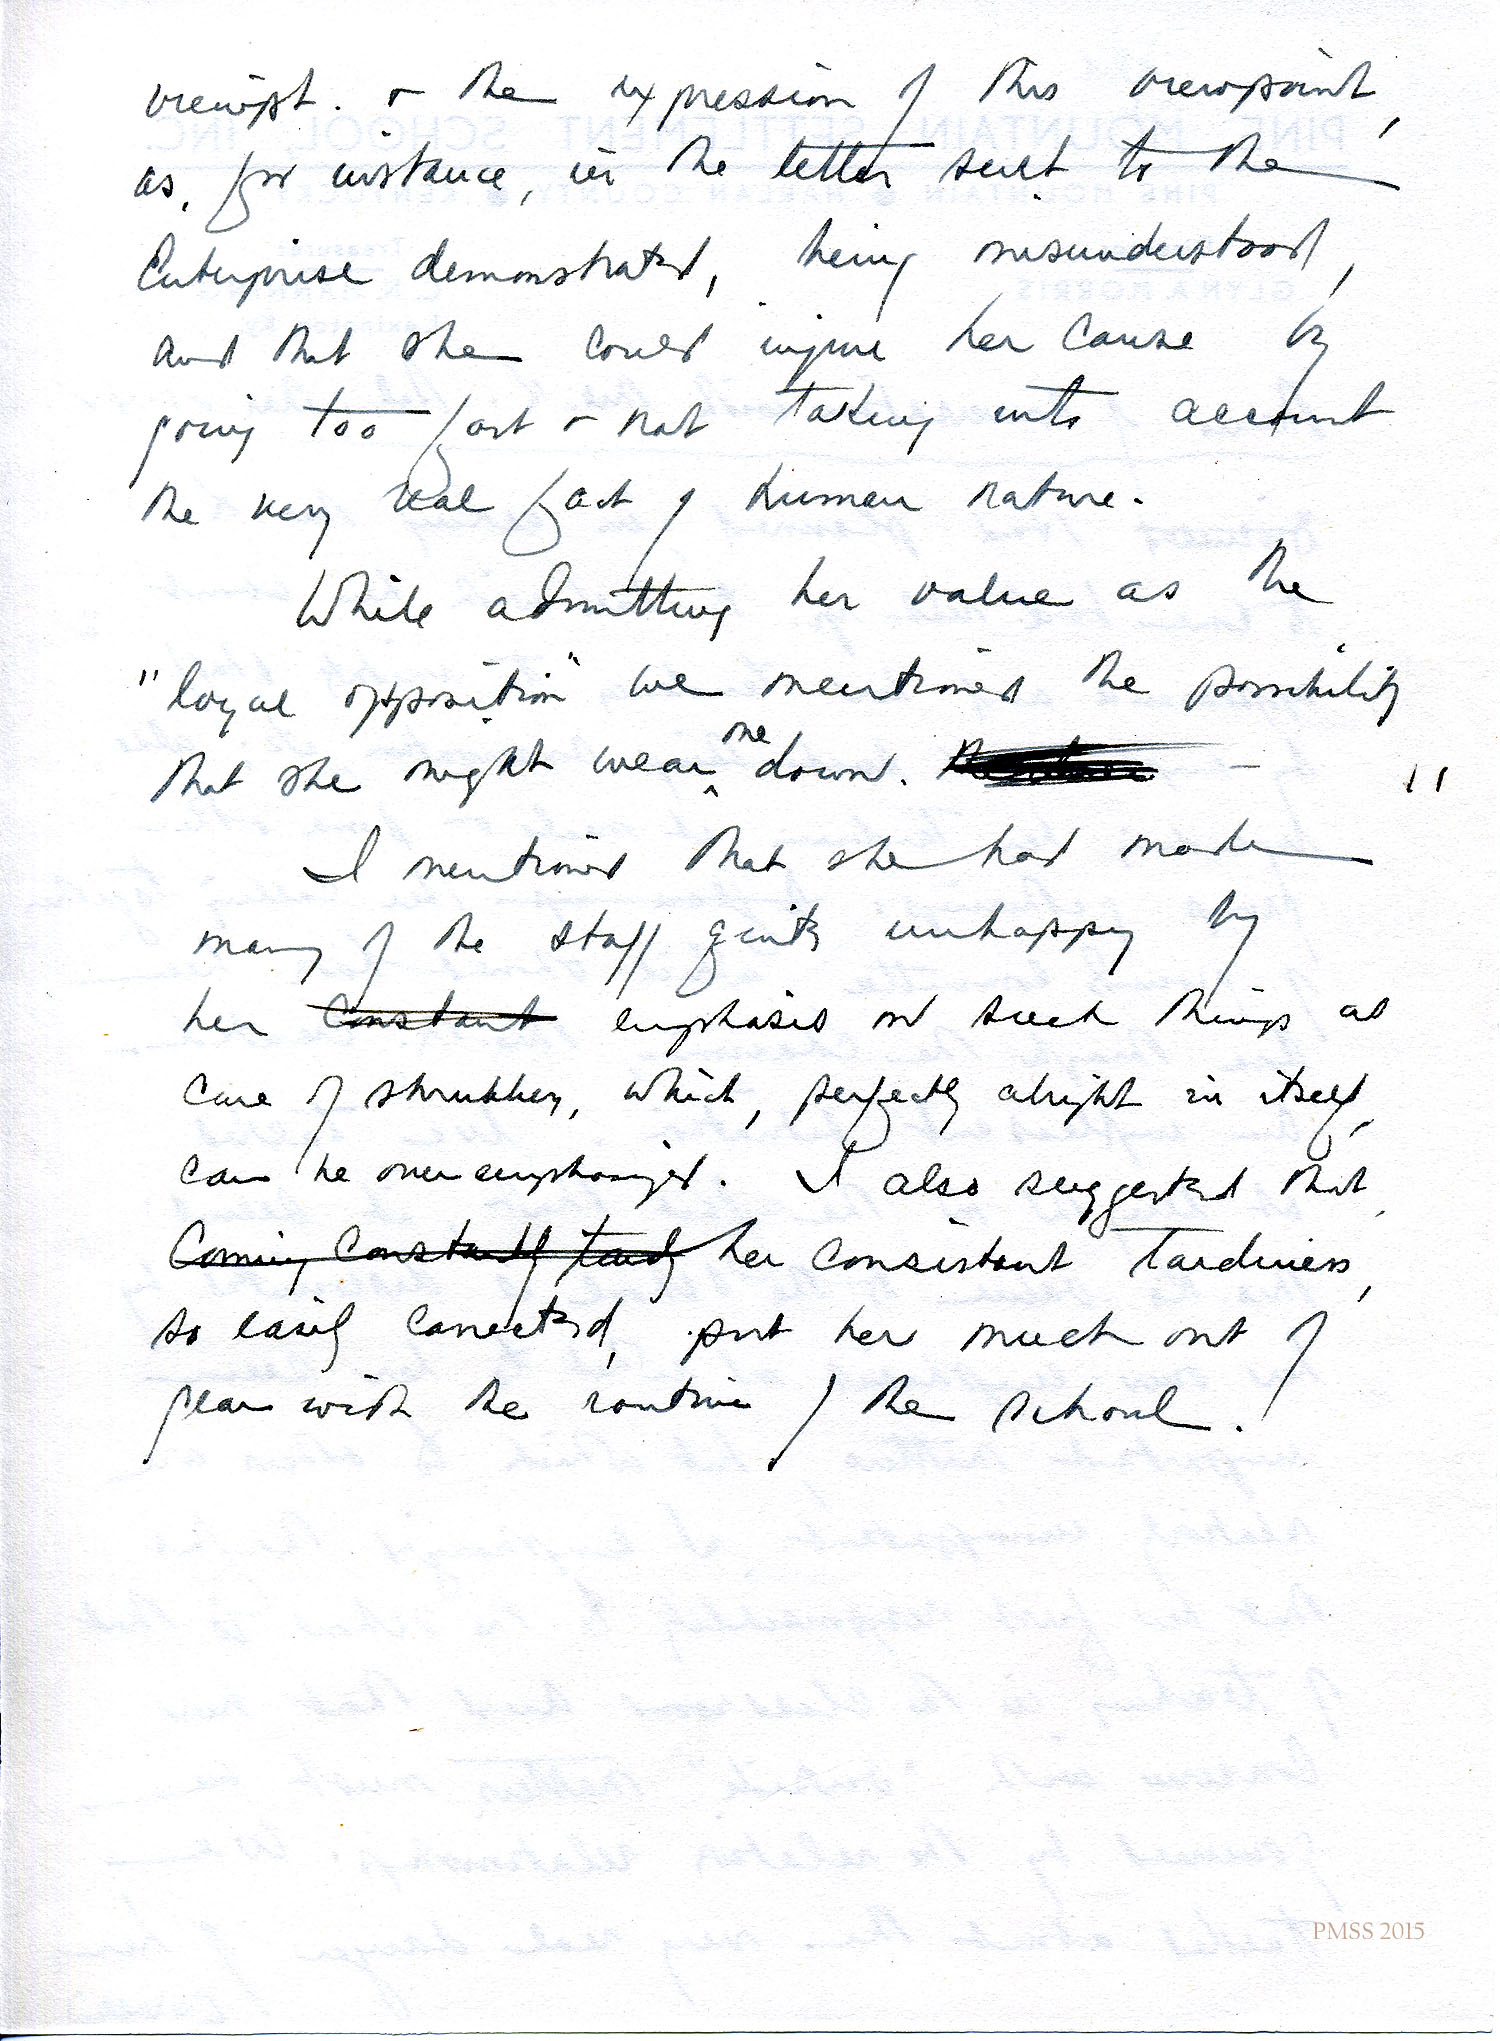 viewpt. & the expression of this viewpoint,
as, for instance, in the letter sent to the
Enterprise demonstrated, being misunderstood,
and that she could injure her cause by
going too fast & not taking into account
the very real fact of human nature.
While admitting her value as the
"loyal opposition" we mentioned the possibility
that she might wear one down. –
I mentioned that she had made
many of the staff quite unhappy by
her constant emphasis on such things as
care of shrubbery, which, perfectly alright in itself,
can be over emphasized. I also suggested that,
coming constantly tardy her consistent tardiness,
so easily corrected, put her much out of
gear with the routine of the school.
PMSS 2015